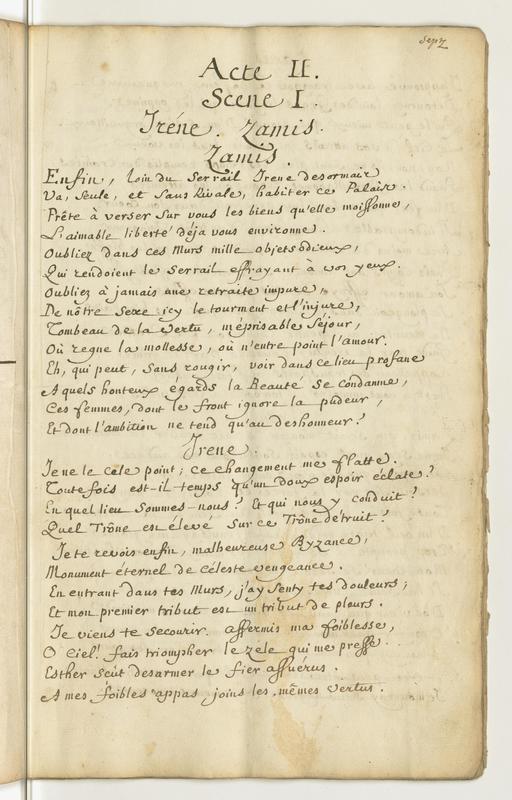 sept
Acte II.
Scene I.
Iréne. Zamis.
Zamis.
Enfin, loin du Serrail Irene desormais
Va, seule, et sans Rivale, habiter ce Palais.
Prête à verser sur vous les biens qu'elle moissonne,
L'aimable liberté déja vous environne.
Oubliez dans ces Murs mille objets odieux,
Qui rendoient le Serrail effrayant à vos yeux.
Oubliez à jamais une retraite impure,
De nôtre Sexe icy le tourment et l'injure,
Tombeau de la vertu, méprisable Séjour,
Où regne la mollesse, où n'entre point l'amour.
Eh, qui peut, sans rougir, voir dans ce lieu profane
A quels honteux égards la Beauté se condamne,
Ces femmes, dont le front ignore la pudeur,
Et dont l'ambition ne tend qu'au deshonneur?
Irene.
Je ne le céle point; ce changement me flatte.
Toutefois est-il temps qu'un doux espoir éclate?
En quel lieu sommes-nous? Et qui nous y conduit?
Quel Trône est élevé sur ce Trône détruit?
Je te revois enfin, malheureuse Byzance,
Monument éternel de céleste vengeance.
En entrant dans tes Murs, j'ay senty tes douleurs;
Et mon premier tribut est un tribut de pleurs.
Je viens te secourir. affermis ma foiblesse,
O Ciel! fais triompher le zele qui me presse.
Esther sçut desarmer le fier assuerus.
A mes foibles appas joins les mêmes vertus.